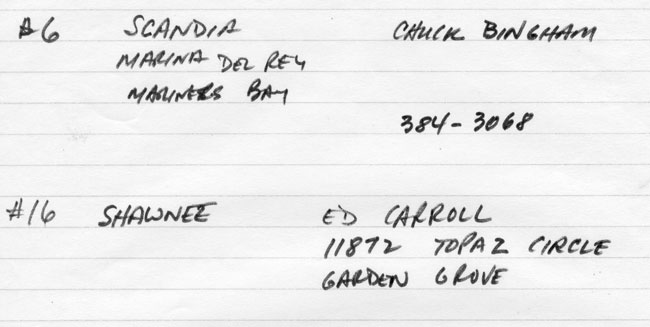 #6 SCANDIA CHUCK BINGHAM
MARINA DEL REY
MARINERS BAY
384-3068
#16 SHAWNEE ED CARROLL
11872 TOPAZ CIRCLE
GARDEN GROVE